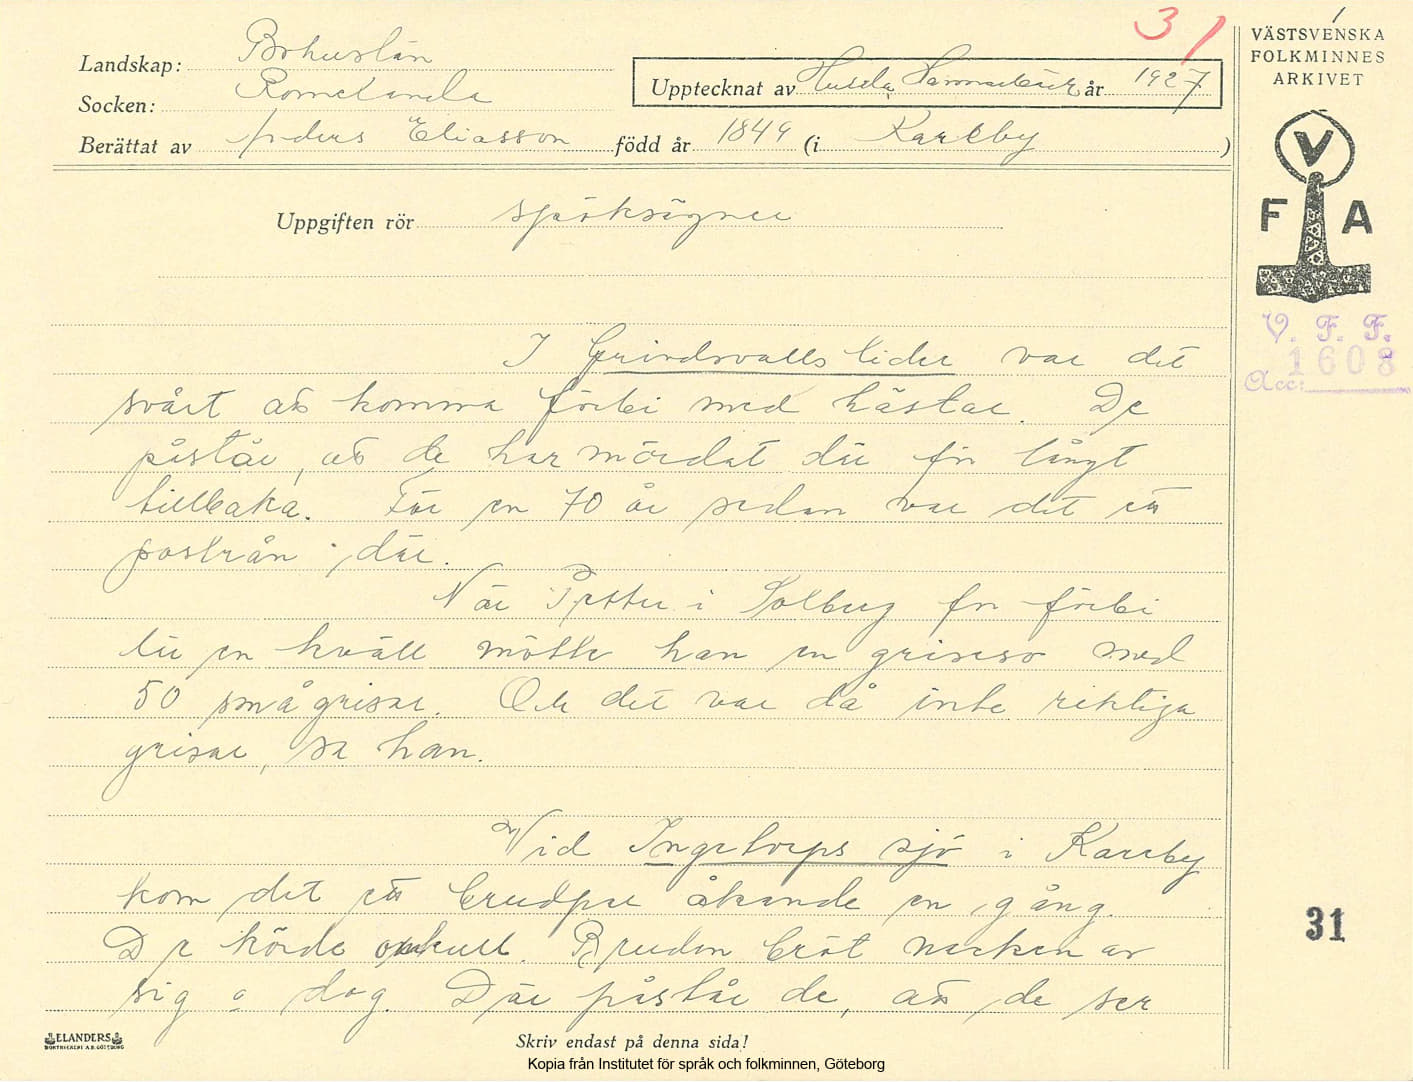 31
VÄSTSVENSKA
FOLKMINNES
ARKIVET
Landskap: Bohuslän
Socken: Romelanda
Upptecknat av Hulda Hammarbäck år 1927
Berättat av Anders Eliasson född år 1849 (i Kareby)
V
F A
Uppgiften rör spöksägner
V. F. F.
1608
Acc:
I Grindsvalls lider var det
svårt att komma förbi med hästar. De
påstår, att de har mördat där för långt
tillbaka. För en 70 år sedan var det ett
postrån där.
När Petter i Solberg for förbi
där en kväll mötte han en griseso med
50 små grisar. Och det var då inte riktiga
grisar, sa han.
Vid Ingetorps sjö i Kareby
kom det ett brudpar åkande en gång.
De körde omkull. Bruden bröt nacken av
sig o dog. Där påstår de, att de ser
31
ELANDERS
BOKTRYCKERI A.B. GÖTEBORG
Skriv endast på denna sida!
Kopia från Institutet för språk och folkminnen, Göteborg